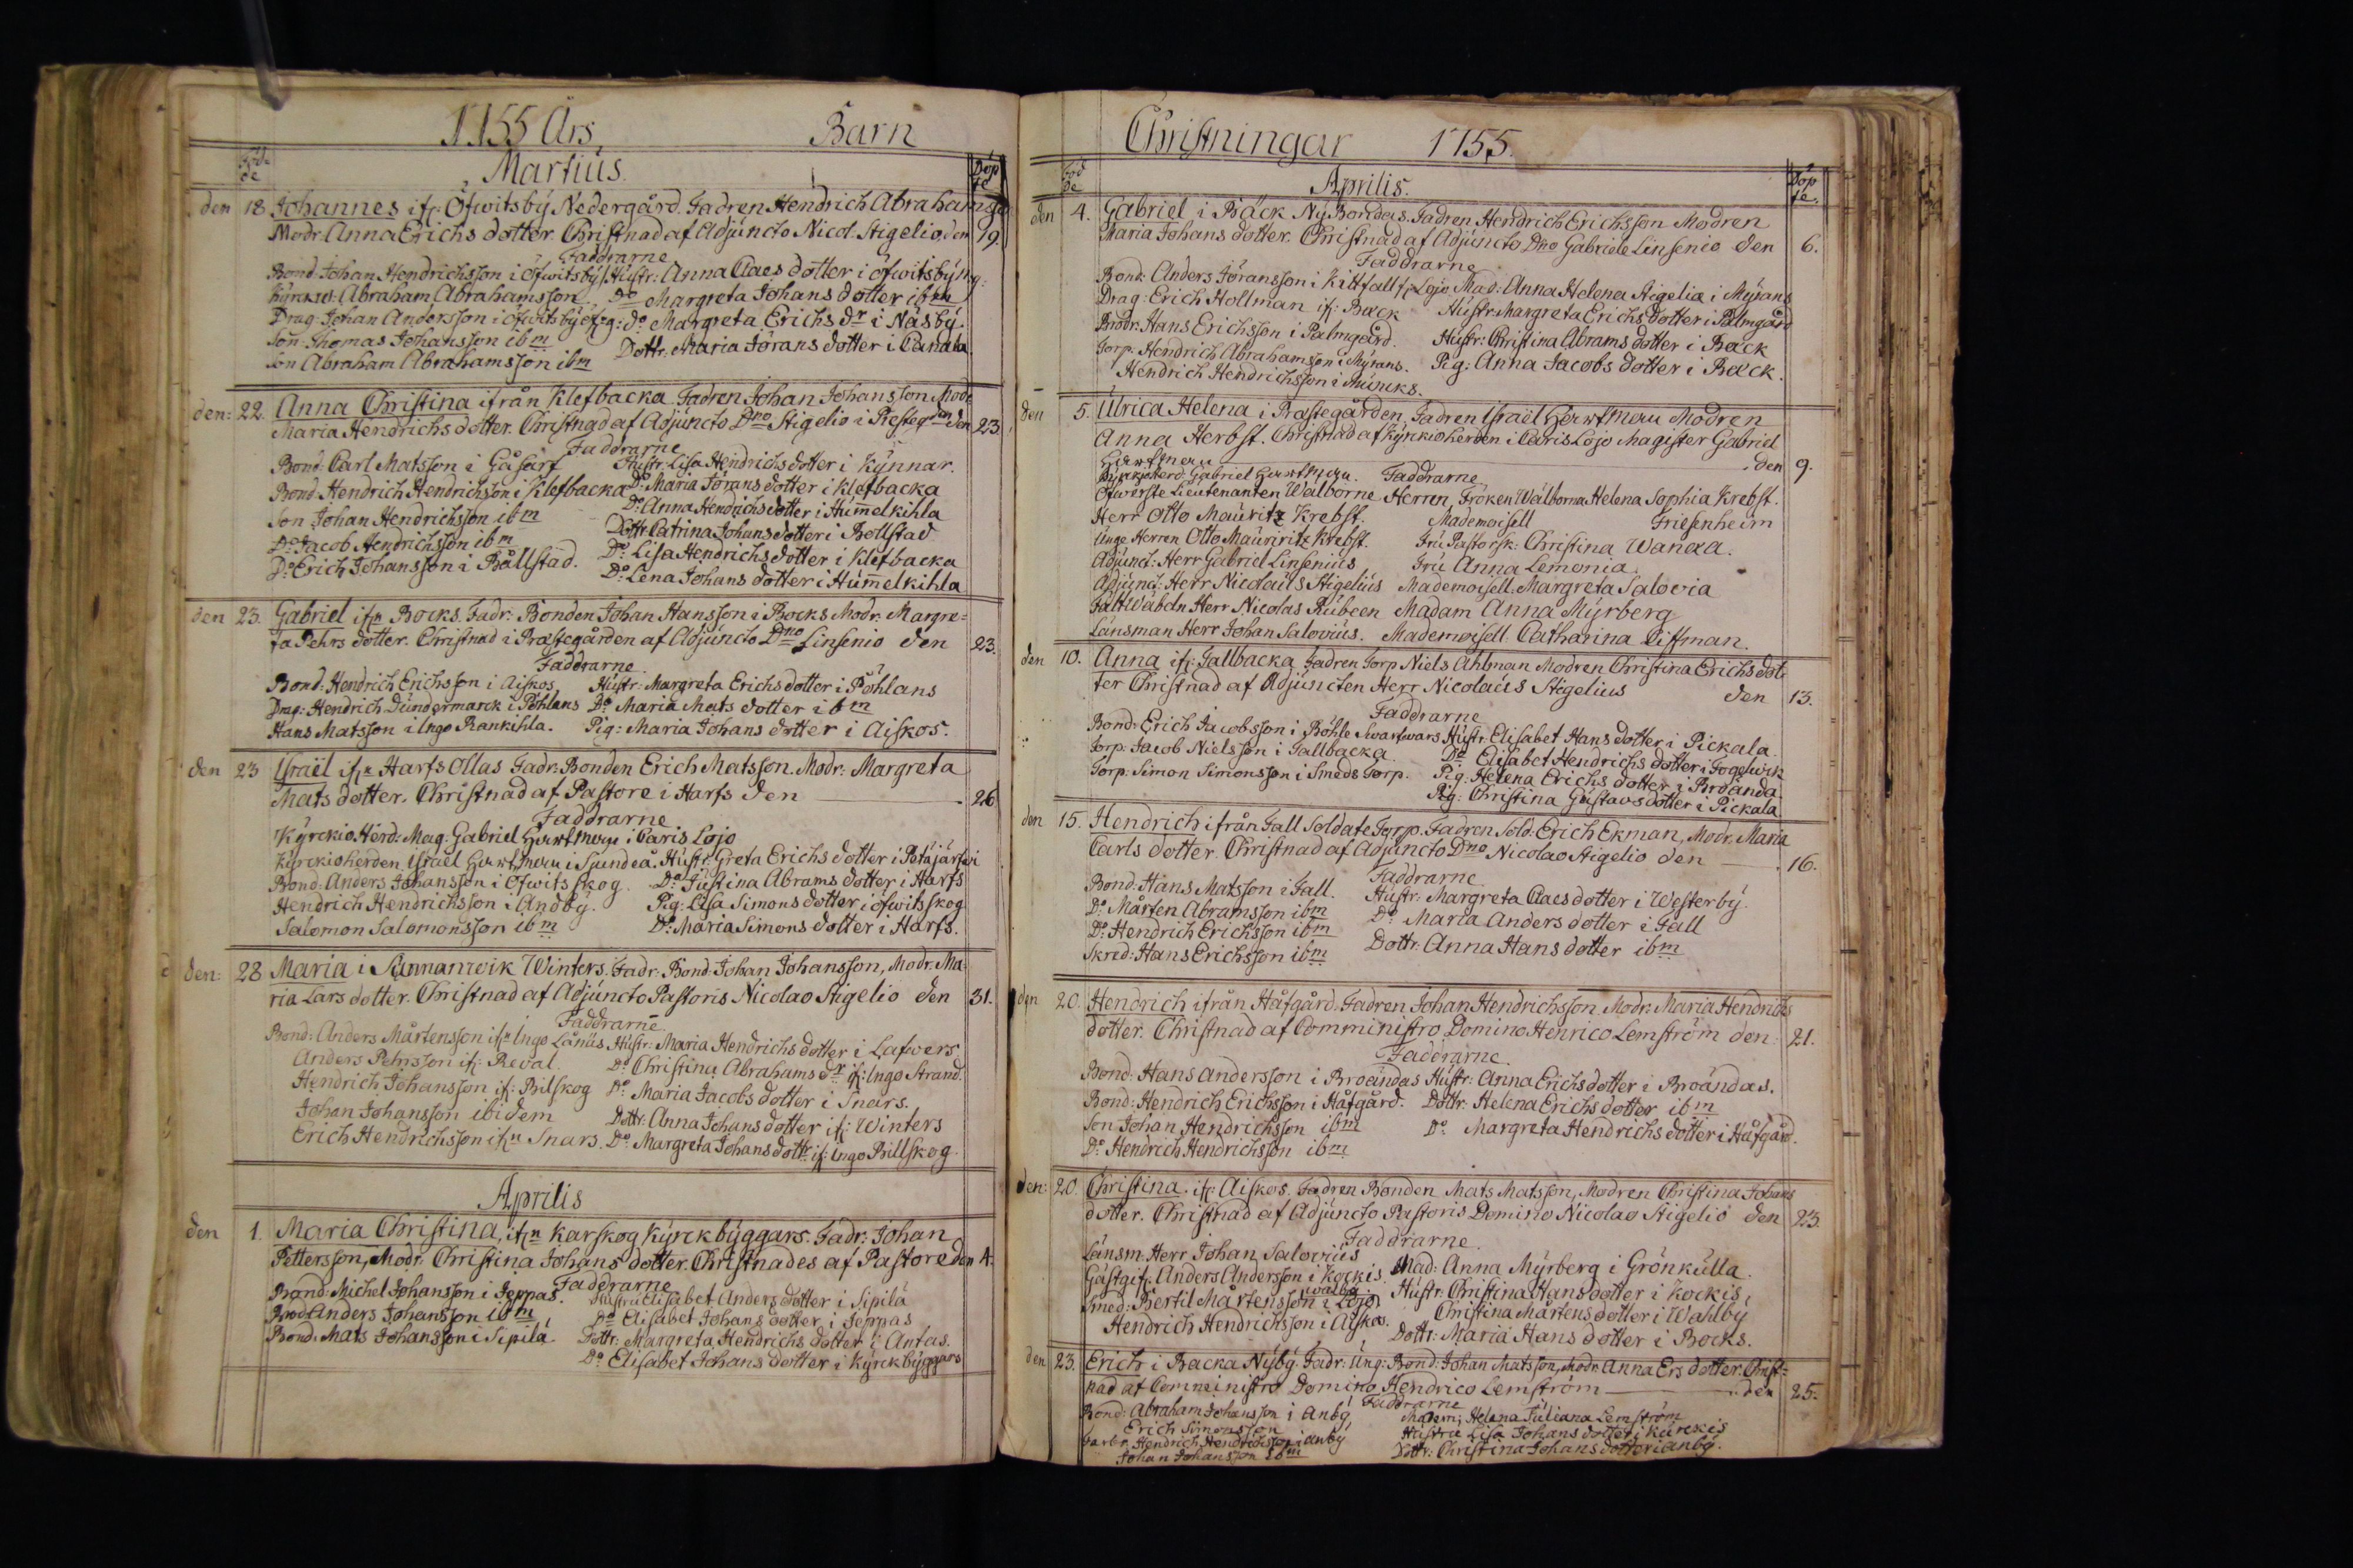 1755 Års, Barn
Föd de Martius. Döp te
den 18 Johannes ifr: Öfwitsbÿ Nedergård. Fadren Hendrich Abrahamsson
Modr: Anna Erichs dotter. Christnad af Adjuncto Nicol. Stigelio den 19
Faddrarne
Bond Johan Hendrichsson i Öfwitsbÿ Hustr: Anna Claes dotter i öfwitsbÿ
Kÿrkw: Abraham Abrahamsson Do Margreta Johans dotter ibm
Drag: Johan Andersson i öfwitsbÿ do Margreta Erichs dr i Näsbÿ.
Son Thomas Johansson ibm Dottr. Maria Jörans dotter i Candala
Son Abraham Abrahamsson ibm
den: 22. Anna Christina ifrån Klefbacka Fadren Johan Johansson Modr
Maria Hendrichs dotter. Christnad af Adjuncto Dno Stigelio i Presteg den den 23
Faddrarne
Bond Carl Matsson i Gåsarf Hustr: Lisa Hendrichs dotter i Kÿnnar.
Bond Hendrich Hendrichsson i Klefbacka Do Maria Jörans dotter i Klefbacka
Son Johan Hendrichsson ibm Do. Anna Hendrichs dotter i Hum̅elkihla
Do Jacob Hendrichsson ibm Dottr Catrina Johans dotter i Bollstad
Do Erich Johansson i Bållstad. Do Lisa Hendrichs dotter i Klefbacka
Do Lena Johans dotter i Hum̅elkihla
den 23. Gabriel ifrn Bocks. Fadr: Bonden Johan Hansson i Bocks Modr. Margre=
ta Pehrs dotter. Christnad i Prästegården af Adjuncto Dno Linsenio den 23.
Faddrarne
Bond: Hendrich Erichsson i Aiskos, Hustr: Margreta Erichs dotter i Pöhlans
Drag: Hendrich Dundermarck i Pöhlans Do Maria Mats dotter ibm
Hans Matsson i Ingo Rankihla. Pig: Maria Johans dotter i Aiskos.
den 23 Israël ifrn Harfs Ollas Fadr: Bonden Erich Matsson. Modr: Margreta
Mats dotter. Christnad af Pastore i Harfs den 26
Faddrarne
Kÿrckio Herd: Mag: Gabriel Hartman i Caris Lojo
Kÿrckioherden Israel Hartman i Sjundeå. Hustr: Greta Erichs dotter i Potäjärfwi
Bond: Anders Johansson i Öfwits skog. Do Justina Abrams dotter i Harfs
Hendrich Hendrichsson i Andbÿ. Pig: Lisa Simons dotter i öfwits skog
Salomon Salomonsson ibm Do: Maria Simons dotter i Harfs.
den: 28 Maria i Sunnanwik Winters. Fadr: Bond: Johan Johansson, Modr. Ma
ria Lars dotter. Christnad af Adjuncto Pastoris Nicolao Stigelio den 31.
Faddrarne
Bond: Anders Mårtensson ifrn Ingo Lånus Hustr: Maria Hendrichs dotter i Lafwers
Anders Pehrsson ifr: Reval. Do Christina Abrahams dr ifr: Ingo Strand.
Hendrich Johansson ifr: Bilskog Do Maria Jacobs dotter i Snars.
Johan Johansson ibidem Dottr: Anna Johans dotter ifr: Winters
Erich Hendrichsson ifrn Snars. Do. Margreta Johans dottr ifr: Ingo Billskog.
Aprilis
den 1. Maria Christina, ifrn Karskog Kÿrckbÿggars. Fadr: Johan
Pettersson, Modr. Christina Johans dotter. Christnades af Pastore den 4.
Faddrarne
Bond: Michel Johansson i Jeppas. Hustru Elisabet Anders dotter i Sipilä
Anders Johansson ibm Do Elisabet Johans dotter i Jeppas
Bond. Mats Johansson i Sipilä. Dottr: Margreta Hendrichs dotter i Antas.
Do Elisabet Johans dotter i Kÿrckbÿggars
Christningar 1755.
Föd de Aprilis. Döp te.
den 4. Gabriel i Bäck Nÿ Bondas. Fadren Hendrich Erichsson Modren
Maria Johans dotter. Christnad af Adjuncto Dno Gabriele Linsenio den 6.
Faddrarne
Bond: Anders Jöransson i Kittfall fr Lojo Mad: Anna Helena Stigelia i Mÿrans
Drag: Erich Hollman ifr: Back Hustr: Margreta Erichs dotter i Palmgård
Brodr: Hans Erichsson i Palmgård. Hustr: Christina Abrams dotter i Back
Torp: Hendrich Abrahamsson i Mÿrans. Pig: Anna Jacobs dotter i Back.
Hendrich Hendrichsson i
den 5. Ulrica Helena i Prästegården, Fadren Israël Hartman Modren
Anna Herbst. Christnad af Kÿrckioherden i Caris Lojo Magister Gabriel
Hartman den 9.
Kÿrckoherd. Gabriel Hartman Faddrarne
Öfwerste Lieutenanten Wälborne Herren Fröken Wälborna Helena Sophia Krebst.
Herr Otto Mauritz Krebst. Mademoisell Friesenheim
Unge Herren Otto Mauriritz Krebst. Fru Pastorsk: Christina Wanæa.
Adjunct: Herr Gabriel Linsenius Fru Anna Lemonia.
Adjunct. Herr Nicolaus Stigelius Mademoisell. Margreta Salovia
Fältwäbeln Herr Nicolas Rubeen Madam Anna Mÿrberg
Länsman Herr Johan Salovius. Mademoisell Catharina Ciffman.
den 10. Anna ifr: Fallbacka Fadren Torp Niels Ahlman Modren Christina Erichs dot
ter Christnad af Adjuncten Herr Nicolaus Stigelius den 13.
Faddrarne
Bond: Erich Jacobsson i Böhle Swartwars Hustr: Elisabet Hans dotter i Pickala.
Torp: Jacob Nielsson i Fallbacka Do Elisabet Hendrichs dotter i Fogelwik
Torp: Simon Simonsson i Smeds Torp. Pig: Helena Erichs dotter i Broända
Pig: Christina Gustavs dotter i Pickala
den 15. Hendrich ifrån Fall Soldate Torp. Fadren Sold: Erich Ekman, Modr. Maria
Carls dotter. Christnad af Adjuncto Dno Nicolao Stigelio den 16.
Faddrarne
Bond: Hans Matsson i Fall. Hustr: Margreta Claes dotter i Westerbÿ.
Do Mårten Abramsson ibm Do Maria Anders dotter i Fall
Do Hendrich Erichsson ibm Dottr: Anna Hans dotter ibm
Skred: Hans Erichsson ibm
den 20. Hendrich ifrån Håfgård. Fadren Johan Hendrichsson. Modr: Maria Hendrichs
dotter. Christnad af Comministro Domino Henrico Lemström den: 21.
Faddrarne
Bond: Hans Andersson i Broändas Hustr: Anna Erichs dotter i Broändas.
Bond: Hendrich Erichsson i Håfgård. Dottr: Helena Erichs dotter ibm
Son Johan Hendrichsson ibm Do. Margreta Hendrichs dotter i Håfgård.
Do Hendrich Hendrichsson ibm
den: 20. Christina. ifr: Aiskos. Fadren Bonden Mats Matsson, Modren Christina Johans
dotter. Christnad af Adjuncto Pastoris Domino Nicolao Stigelio den 23.
Faddrarne.
Länsm. Herr Johan Salovius Mad: Anna Mÿrberg i Grönkulla.
Gästgif: Anders Andersson i Kockis. Hustr: Christina Hans dotter i Kockis,
Smed: Bertil Mårtensson i Lojo Christina Mårtens dotter i Wahlbÿ
Hendrich Hendrichsson i Aiskos. Dottr: Maria Hans dotter i Bocks.
den 23. Erich i Backa Nÿbÿ. Fadr: Ung: Bond: Johan Matsson, Modr. Anna Ers dotter. Christ=
nad af Comministro Domino Hendrico Lemström den 25.
Faddrarne
Bond: Abraham Johansson i Anbÿ Helena Juliana Lemström
Erich Simonsson Hustru Lisa Johans dotter i Kurckis
Hendrich Hendrichsson i anbÿ Dottr: Christina Johans dotter i anbÿ.
Johan Johansson ibm